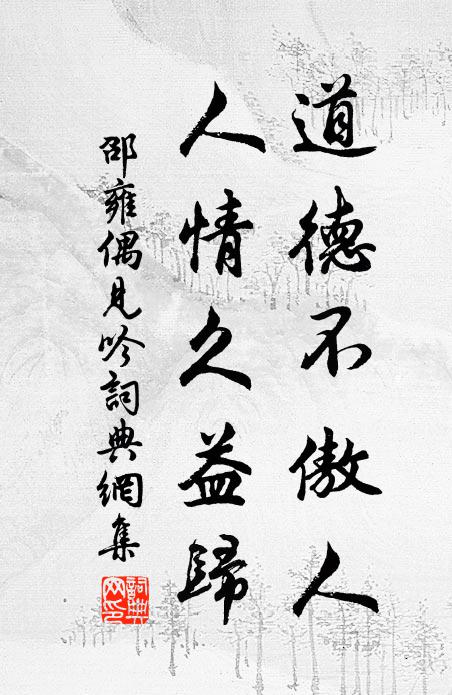 道德不傲人
人情久益歸
邵雍偶見吟詞典網集
詞典
网印